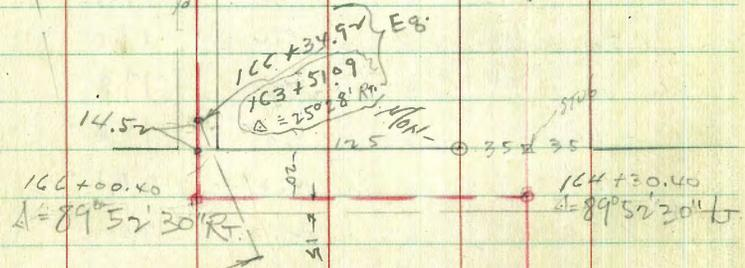 166+34.92 Eq.
163+51.09
Δ=25°28' Rt.
14.52
125
35
STUB
35
20
15
166+00.40
Δ=89°52'30" Rt.
164+30.40
Δ=89°52'30" Lt.